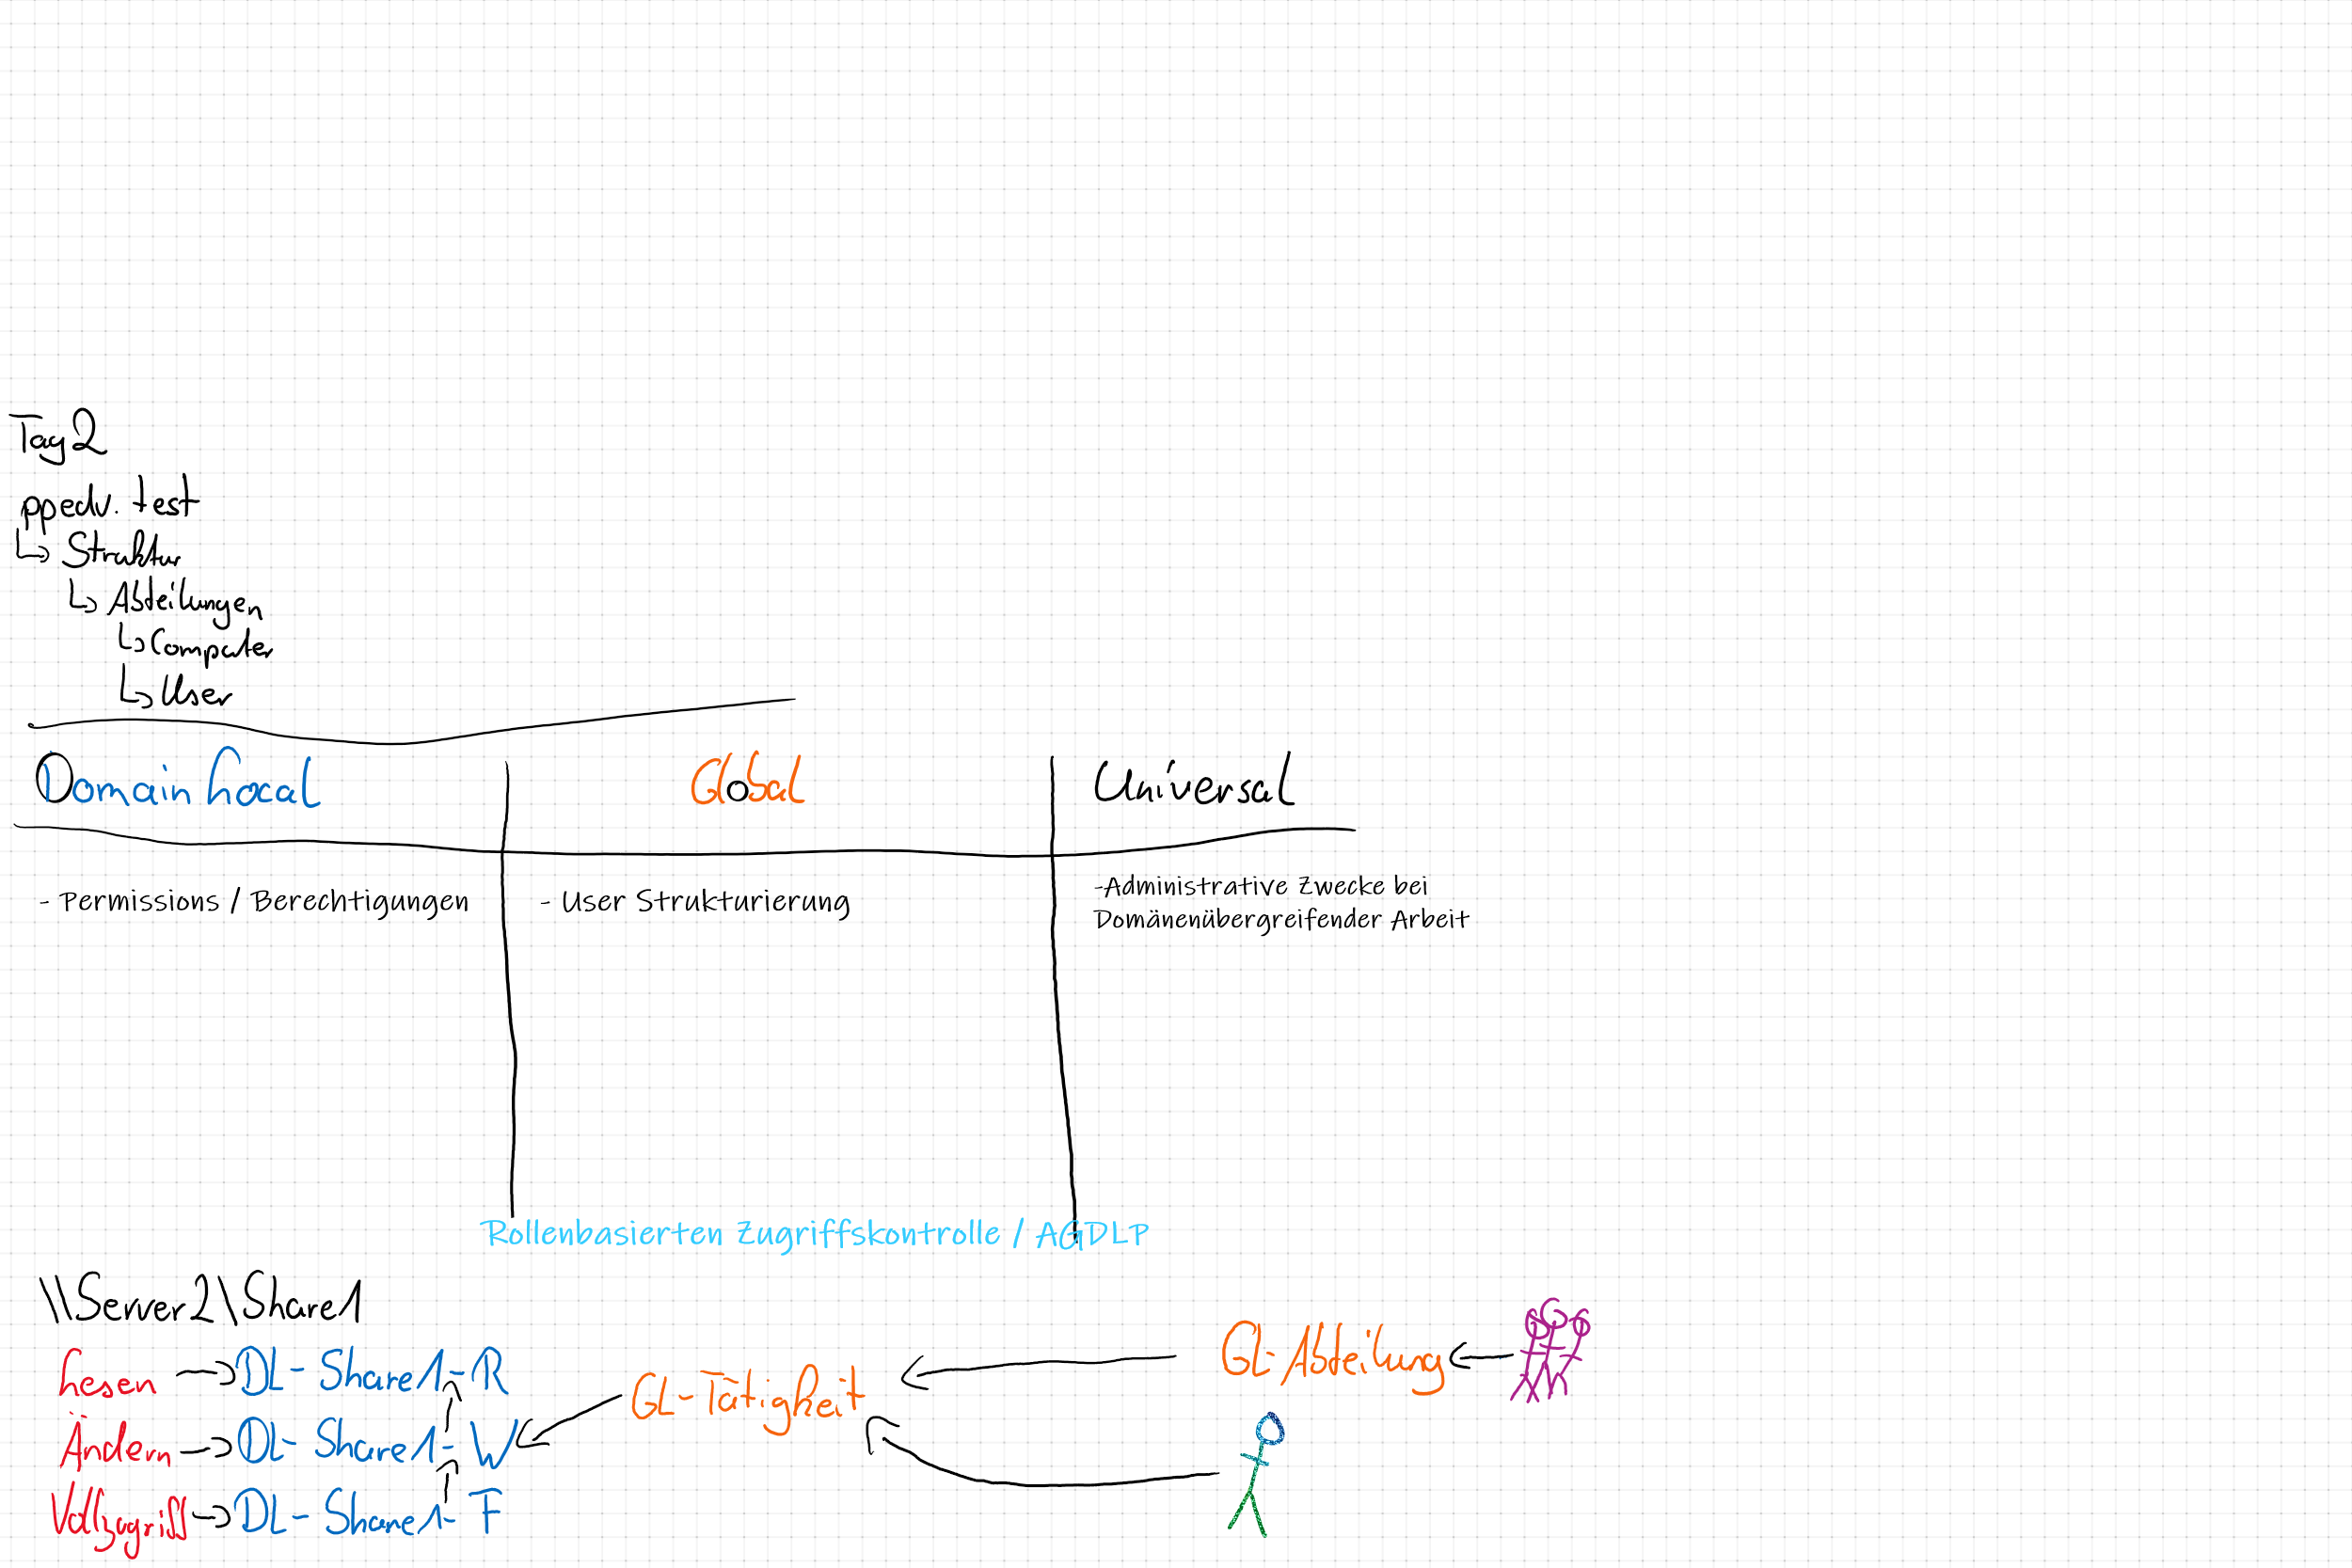 Tag 2
ppedv.test
Struktur
Abteilungen
Computer
User
Domain Local
Global
Universal
- Permissions / Berechtigungen
- User Strukturierung
-Administrative Zwecke bei
Domänenübergreifender Arbeit
Rollenbasierten Zugriffskontrolle / AGDLP
\\Server2\Share1
Lesen DL-Share1-R
GL-Tätigkeit
GL-Abteilung
Ändern DL-Share1-W
Vollzugriff DL-Share1-F